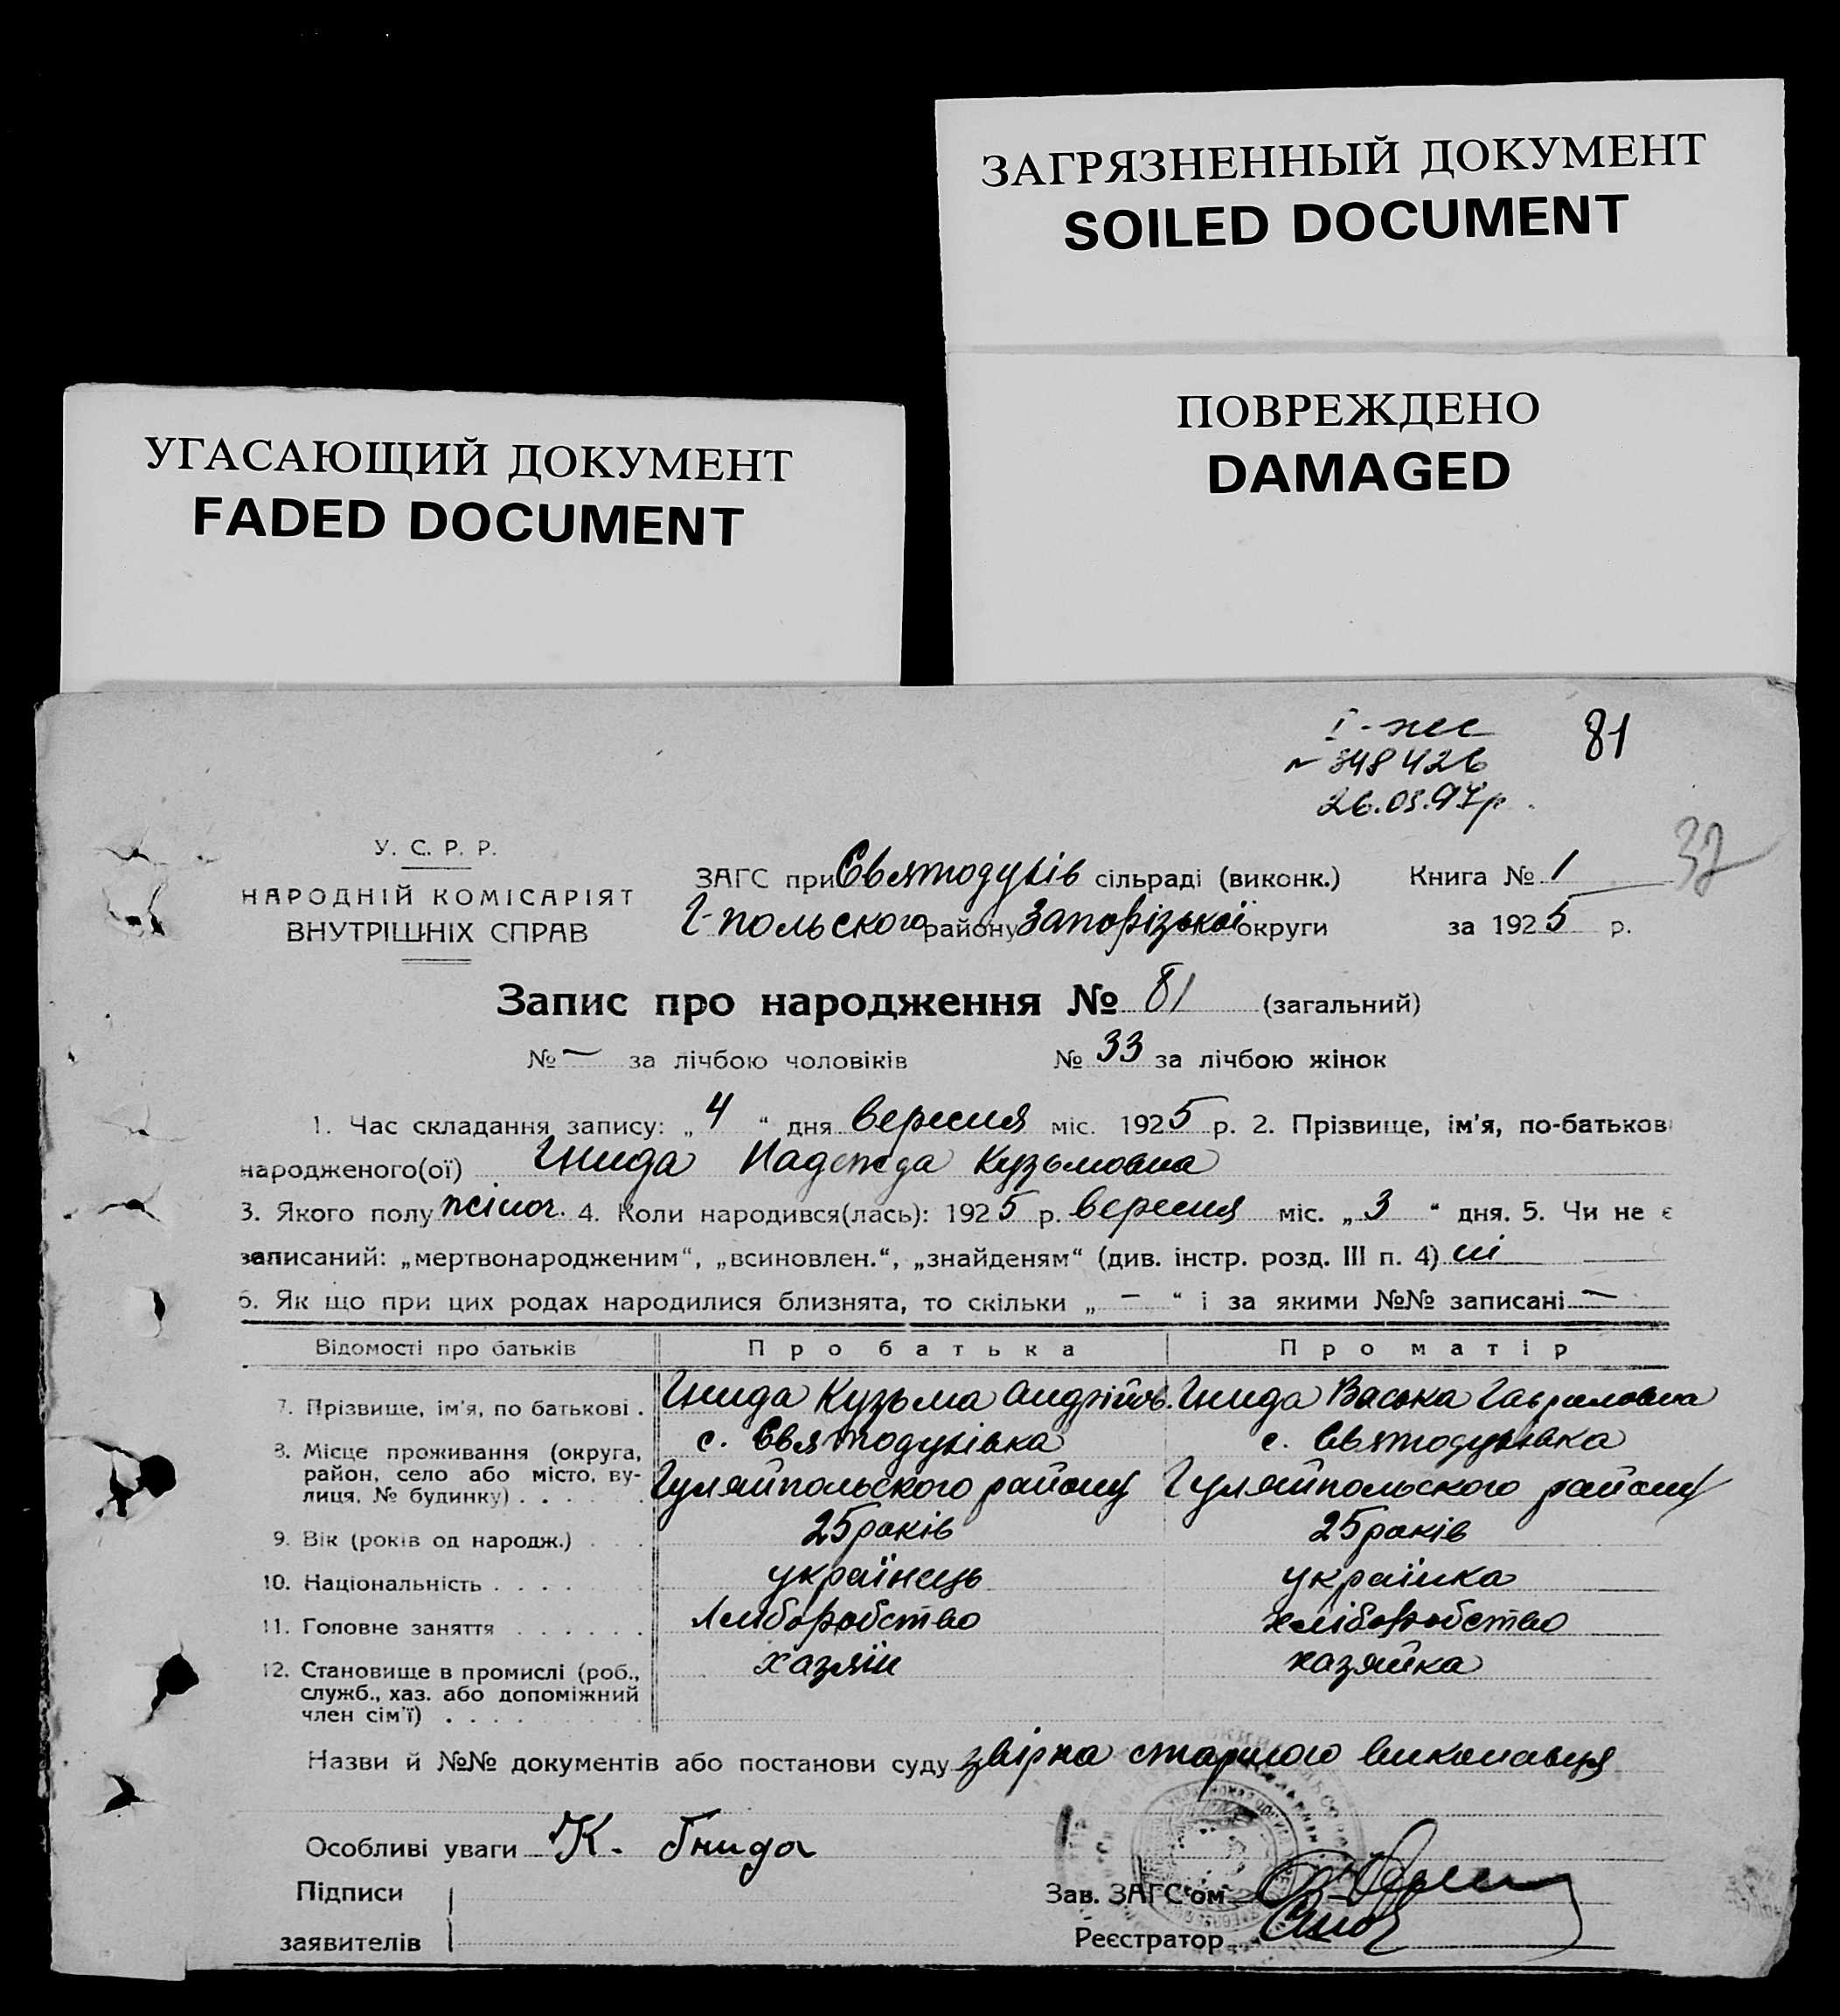 ЗАГРЯЗНЕННЫЙ ДОКУМЕНТ
SOILED DOCUMENT
ПОВРЕЖДЕНО
DAMAGED
УГАСАЮЩИЙ ДОКУМЕНТ
FADED DOCUMENT
81
№ 348426
26.03.97р.
37
У. С. Р. Р.
НАРОДНІЙ КОМІСАРІЯТ
ВНУТРІШНІХ СПРАВ
ЗАГС при Святодухів сільраді (виконк.) Книга № 1
Г-польского району Запорізької округи за 1925 р.
Запис про народження № 81 (загальний)
№ — за лічбою чоловіків № 33 за лічбою жінок
1. Час складання запису: „4“ дня вересня міс. 1925 р. 2. Прізвище, ім'я, по-батькові
народженого(ої) Гнида Надежда Кузьмовна
3. Якого полу жіноч. 4. Коли народився(лась): 1925 р. вересня міс. „3“ дня. 5. Чи не є
записаний: „мертвонародженим“, „всиновлен.“, „знайденям“ (див. інстр. розд. III п. 4) ні
6. Як що при цих родах народилися близнята, то скільки „—“ і за якими №№ записані —
Відомості про батьків Про батька Про матір
7. Прізвище, ім'я, по батькові . Гнида Кузьма Андрійов. Гнида Васька Гавриловна
8. Місце проживання (округа, с. Святодухівка с. Святодухівка
район, село або місто, ву-
лиця, № будинку) . . . . . . Гуляйпольского району Гуляйпольского району
9. Вік (років од народж.) . . . 25 років 25 років
10. Національність . . . . . . українець українка
11. Головне заняття . . . . . . хліборобство хліборобство
12. Становище в промислі (роб., хазяїн хазяйка
служб., хаз. або допоміжний
член сім'ї) . . . . . . . . .
Назви й №№ документів або постанови суду звірка старшого виконавця
Особливі уваги К. Гнида
Підписи
заявителів
Зав. ЗАГС'ом
Реєстратор